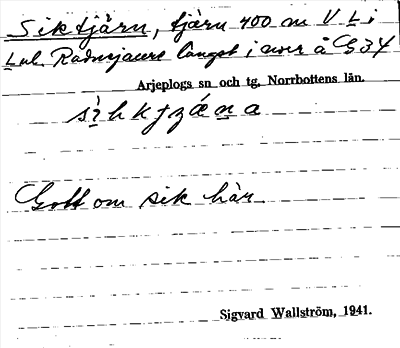 Siktjärn, tjärn 400 m V L. i
L. ul. Radnejaure längst i norr å G 34
Arjeplogs sn och tg. Norrbottens län.
Gott om sik här
Sigvard Wallström, 1941.